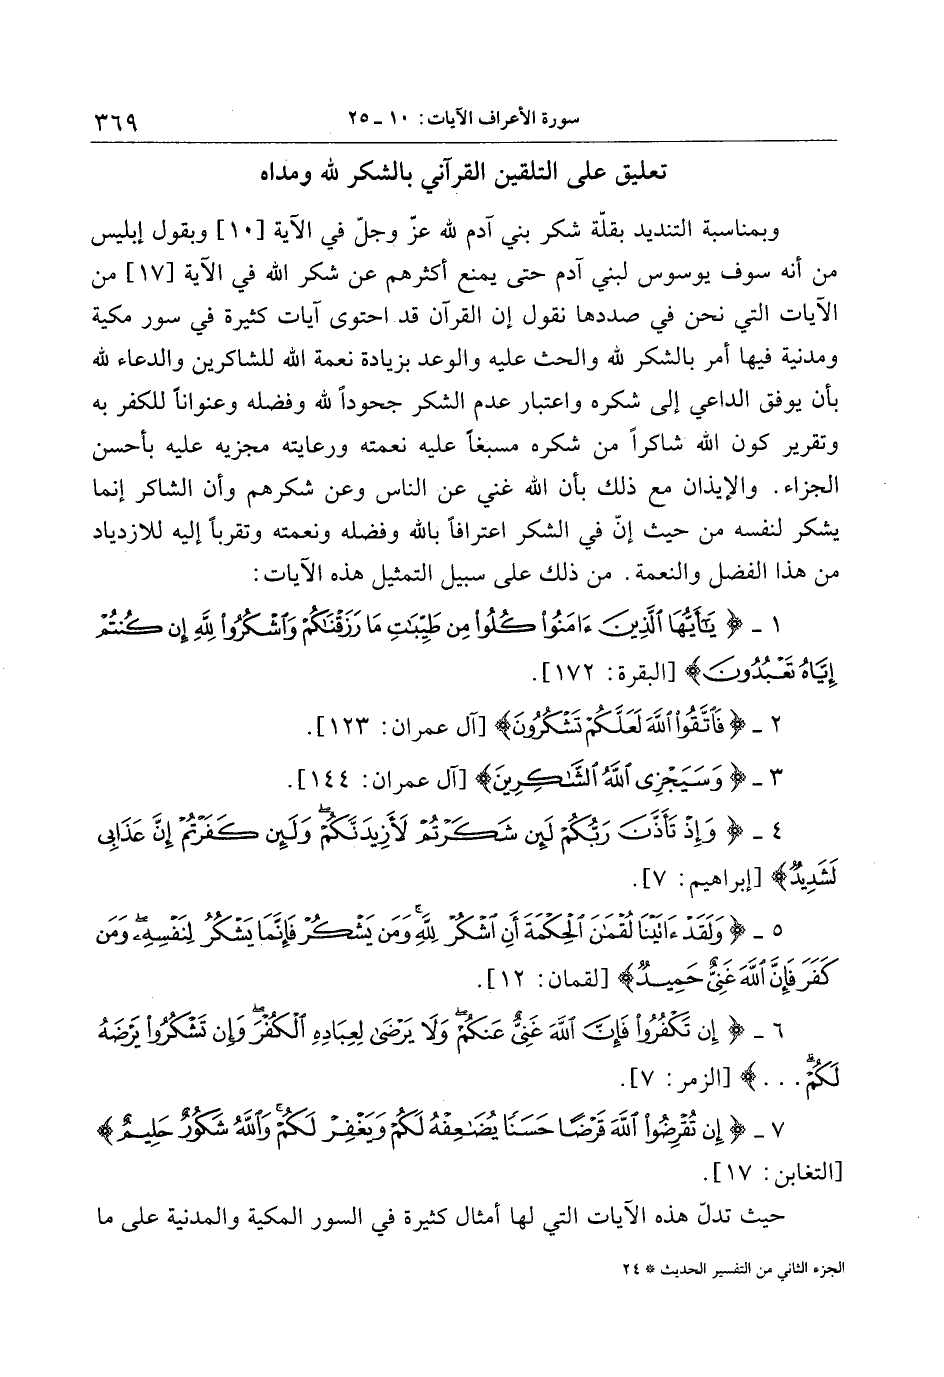 سورة الأعراف الآيات: ١٠ ـ ٢٥ ٣٦٩
تعليق على التلقين القرآني بالشكر لله ومداه
وبمناسبة التنديد بقلّة شكر بني آدم لله عزّ وجلّ في الآية [١٠] وبقول إبليس
من أنه سوف يوسوس لبني آدم حتى يمنع أكثرهم عن شكر الله في الآية [١٧] من
الآيات التي نحن في صددها نقول إن القرآن قد احتوى آيات كثيرة في سور مكية
ومدنية فيها أمر بالشكر لله والحث عليه والوعد بزيادة نعمة الله للشاكرين والدعاء لله
بأن يوفق الداعي إلى شكره واعتبار عدم الشكر جحوداً لله وفضله وعنواناً للكفر به
وتقرير كون الله شاكراً من شكره مسبغاً عليه نعمته ورعايته مجزيه عليه بأحسن
الجزاء. والإيذان مع ذلك بأن الله غني عن الناس وعن شكرهم وأن الشاكر إنما
يشكر لنفسه من حيث إنّ في الشكر اعترافاً بالله وفضله ونعمته وتقرباً إليه للازدياد
من هذا الفضل والنعمة. من ذلك على سبيل التمثيل هذه الآيات:
١ ـ ﴿ يَٰٓأَيُّهَا ٱلَّذِينَ ءَامَنُوا۟ كُلُوا۟ مِن طَيِّبَٰتِ مَا رَزَقْنَٰكُمْ وَٱشْكُرُوا۟ لِلَّهِ إِن كُنتُمْ
إِيَّاهُ تَعْبُدُونَ﴾ [البقرة: ١٧٢].
٢ ـ ﴿ فَٱتَّقُوا۟ ٱللَّهَ لَعَلَّكُمْ تَشْكُرُونَ﴾ [آل عمران: ١٢٣].
٣ ـ ﴿ وَسَيَجْزِى ٱللَّهُ ٱلشَّٰكِرِينَ﴾ [آل عمران: ١٤٤].
٤ ـ ﴿ وَإِذْ تَأَذَّنَ رَبُّكُمْ لَئِن شَكَرْتُمْ لَأَزِيدَنَّكُمْ ۖ وَلَئِن كَفَرْتُمْ إِنَّ عَذَابِى
لَشَدِيدٌ﴾ [إبراهيم: ٧].
٥ ـ ﴿ وَلَقَدْ ءَاتَيْنَا لُقْمَٰنَ ٱلْحِكْمَةَ أَنِ ٱشْكُرْ لِلَّهِ ۚ وَمَن يَشْكُرْ فَإِنَّمَا يَشْكُرُ لِنَفْسِهِۦ ۖ وَمَن
كَفَرَ فَإِنَّ ٱللَّهَ غَنِىٌّ حَمِيدٌ﴾ [لقمان: ١٢].
٦ ـ ﴿ إِن تَكْفُرُوا۟ فَإِنَّ ٱللَّهَ غَنِىٌّ عَنكُمْ ۖ وَلَا يَرْضَىٰ لِعِبَادِهِ ٱلْكُفْرَ ۖ وَإِن تَشْكُرُوا۟ يَرْضَهُ
لَكُمْ ۗ . . . ﴾ [الزمر: ٧].
٧ ـ ﴿ إِن تُقْرِضُوا۟ ٱللَّهَ قَرْضًا حَسَنًا يُضَٰعِفْهُ لَكُمْ وَيَغْفِرْ لَكُمْ ۚ وَٱللَّهُ شَكُورٌ حَلِيمٌ ﴾
[التغابن: ١٧].
حيث تدلّ هذه الآيات التي لها أمثال كثيرة في السور المكية والمدنية على ما
الجزء الثاني من التفسير الحديث * ٢٤